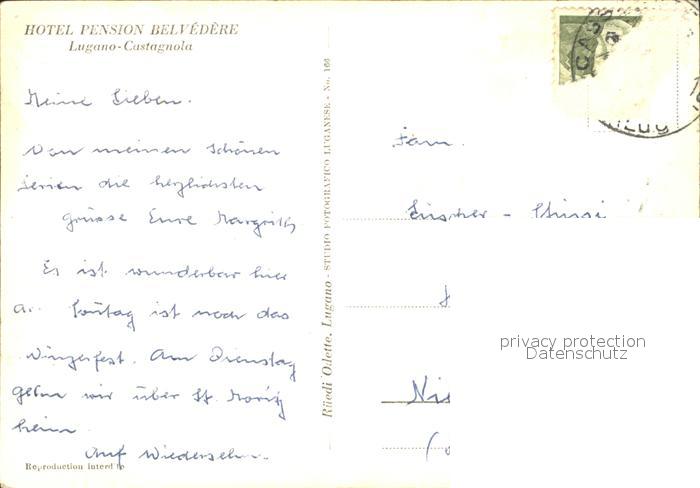 HOTEL PENSION BELVÉDÈRE
Lugano-Castagnola
Meine Lieben.
Von meinen schönen
Ferien die herzlichsten
Grüsse Eure Margrith
Es ist wunderbar hier
Sontag ist noch das
Winzerfest. Am Dienstag
gehn wir über St. Moriz
heim.
Auf Wiedersehn.
Reproduction interdite
Rüedi Odette, Lugano - STUDIO FOTOGRAFICO LUGANESE - No. 166
Fam.
Lüscher -
privacy protection
Datenschutz